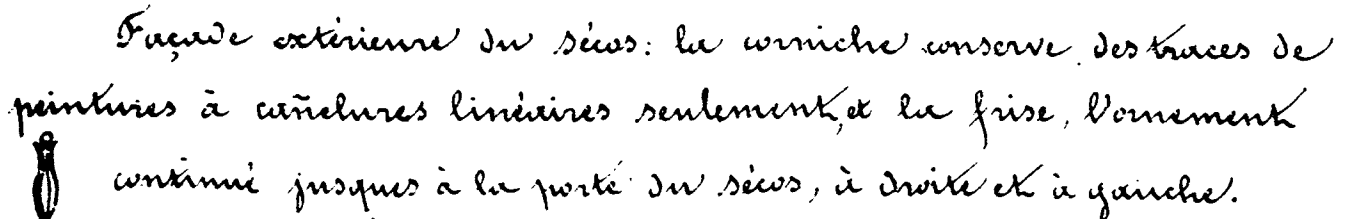 Façade extérieure du sécos: la corniche conserve des traces de
peintures à cañelures linéaires seulement, et la frise, l'ornement
continué jusques à la porte du sécos, à droite et à gauche.